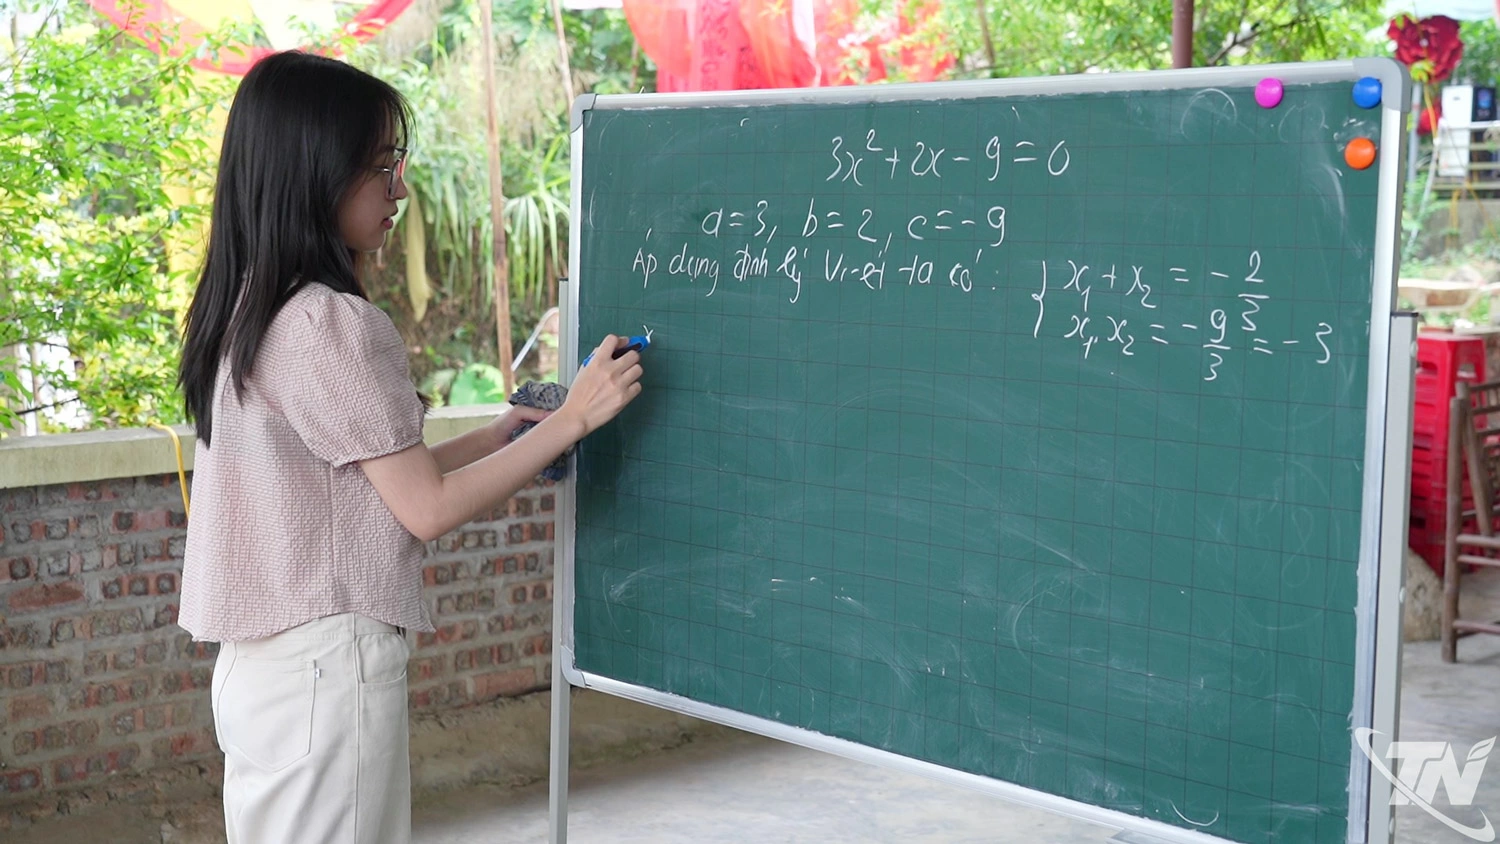 3x² + 2x - 9 = 0
a = 3, b = 2, c = - 9
Áp dụng định lý Vi-ét ta có :
x₁ + x₂ = - 2/3
x₁.x₂ = - 9/3 = - 3
x
TN